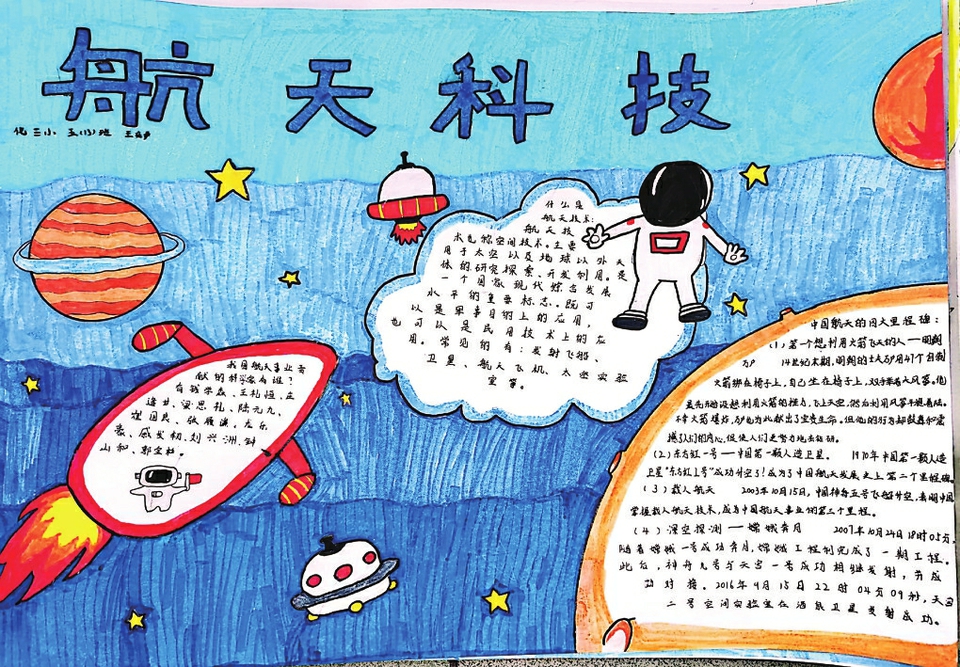 航天科技
化三小 五(13)班
什么是
航天技术:
航天技
术也称空间技术。主要
用于太空以及地球以外天
体的研究探索、开发制用。是
一个国家现代综合发展
水平的重要标志。既可
以是军事目的上的应用,
也可以是民用技术上的应
用。常见的有:发射飞船、
卫星、航天飞机、太空实验
室等。
我国航天事业贡
献的科学家有谁?
有钱学森、王礼恒、庄
逢甘、梁思礼、陆元九、
崔国良、张履谦、龙乐
豪、戚发轫、刘兴洲、钟
山和、郭宝柱。
中国航天的四大里程碑:
(1)第一个想利用火箭飞天的人——明朝
万户 14世纪末期,明朝的士大万户把47个自制
火箭绑在椅子上,自己坐在椅子上,双手举着大风筝。他
最先开始设想利用火箭的推力,飞上天空,然后利用风筝平稳着陆。
不幸火箭爆炸,万户也为此献出了宝贵生命。但他的行为却鼓舞和震
撼了人们的内心,促使人们更努力地去钻研。
(2)东方红一号——中国第一颗人造卫星。 1970年中国第一颗人造
卫星“东方红1号”成功升空了!成为了中国航天发展史上第二个里程碑
(3)载人航天 2003年10月15日,中国神舟五号飞船升空,表明中国
掌握载人航天技术,成为中国航天事业的第三个里程。
(4)深空探测——嫦娥奔月 2007年10月24日18时05分,
随着嫦娥一号成功奔月,嫦娥工程制完成了一期工程。
此后,神舟九号与天宫一号成功相继发射,并成
功对接。2016年9月15日22时04分09秒,天宫
二号空间实验室在酒泉卫星发射成功。